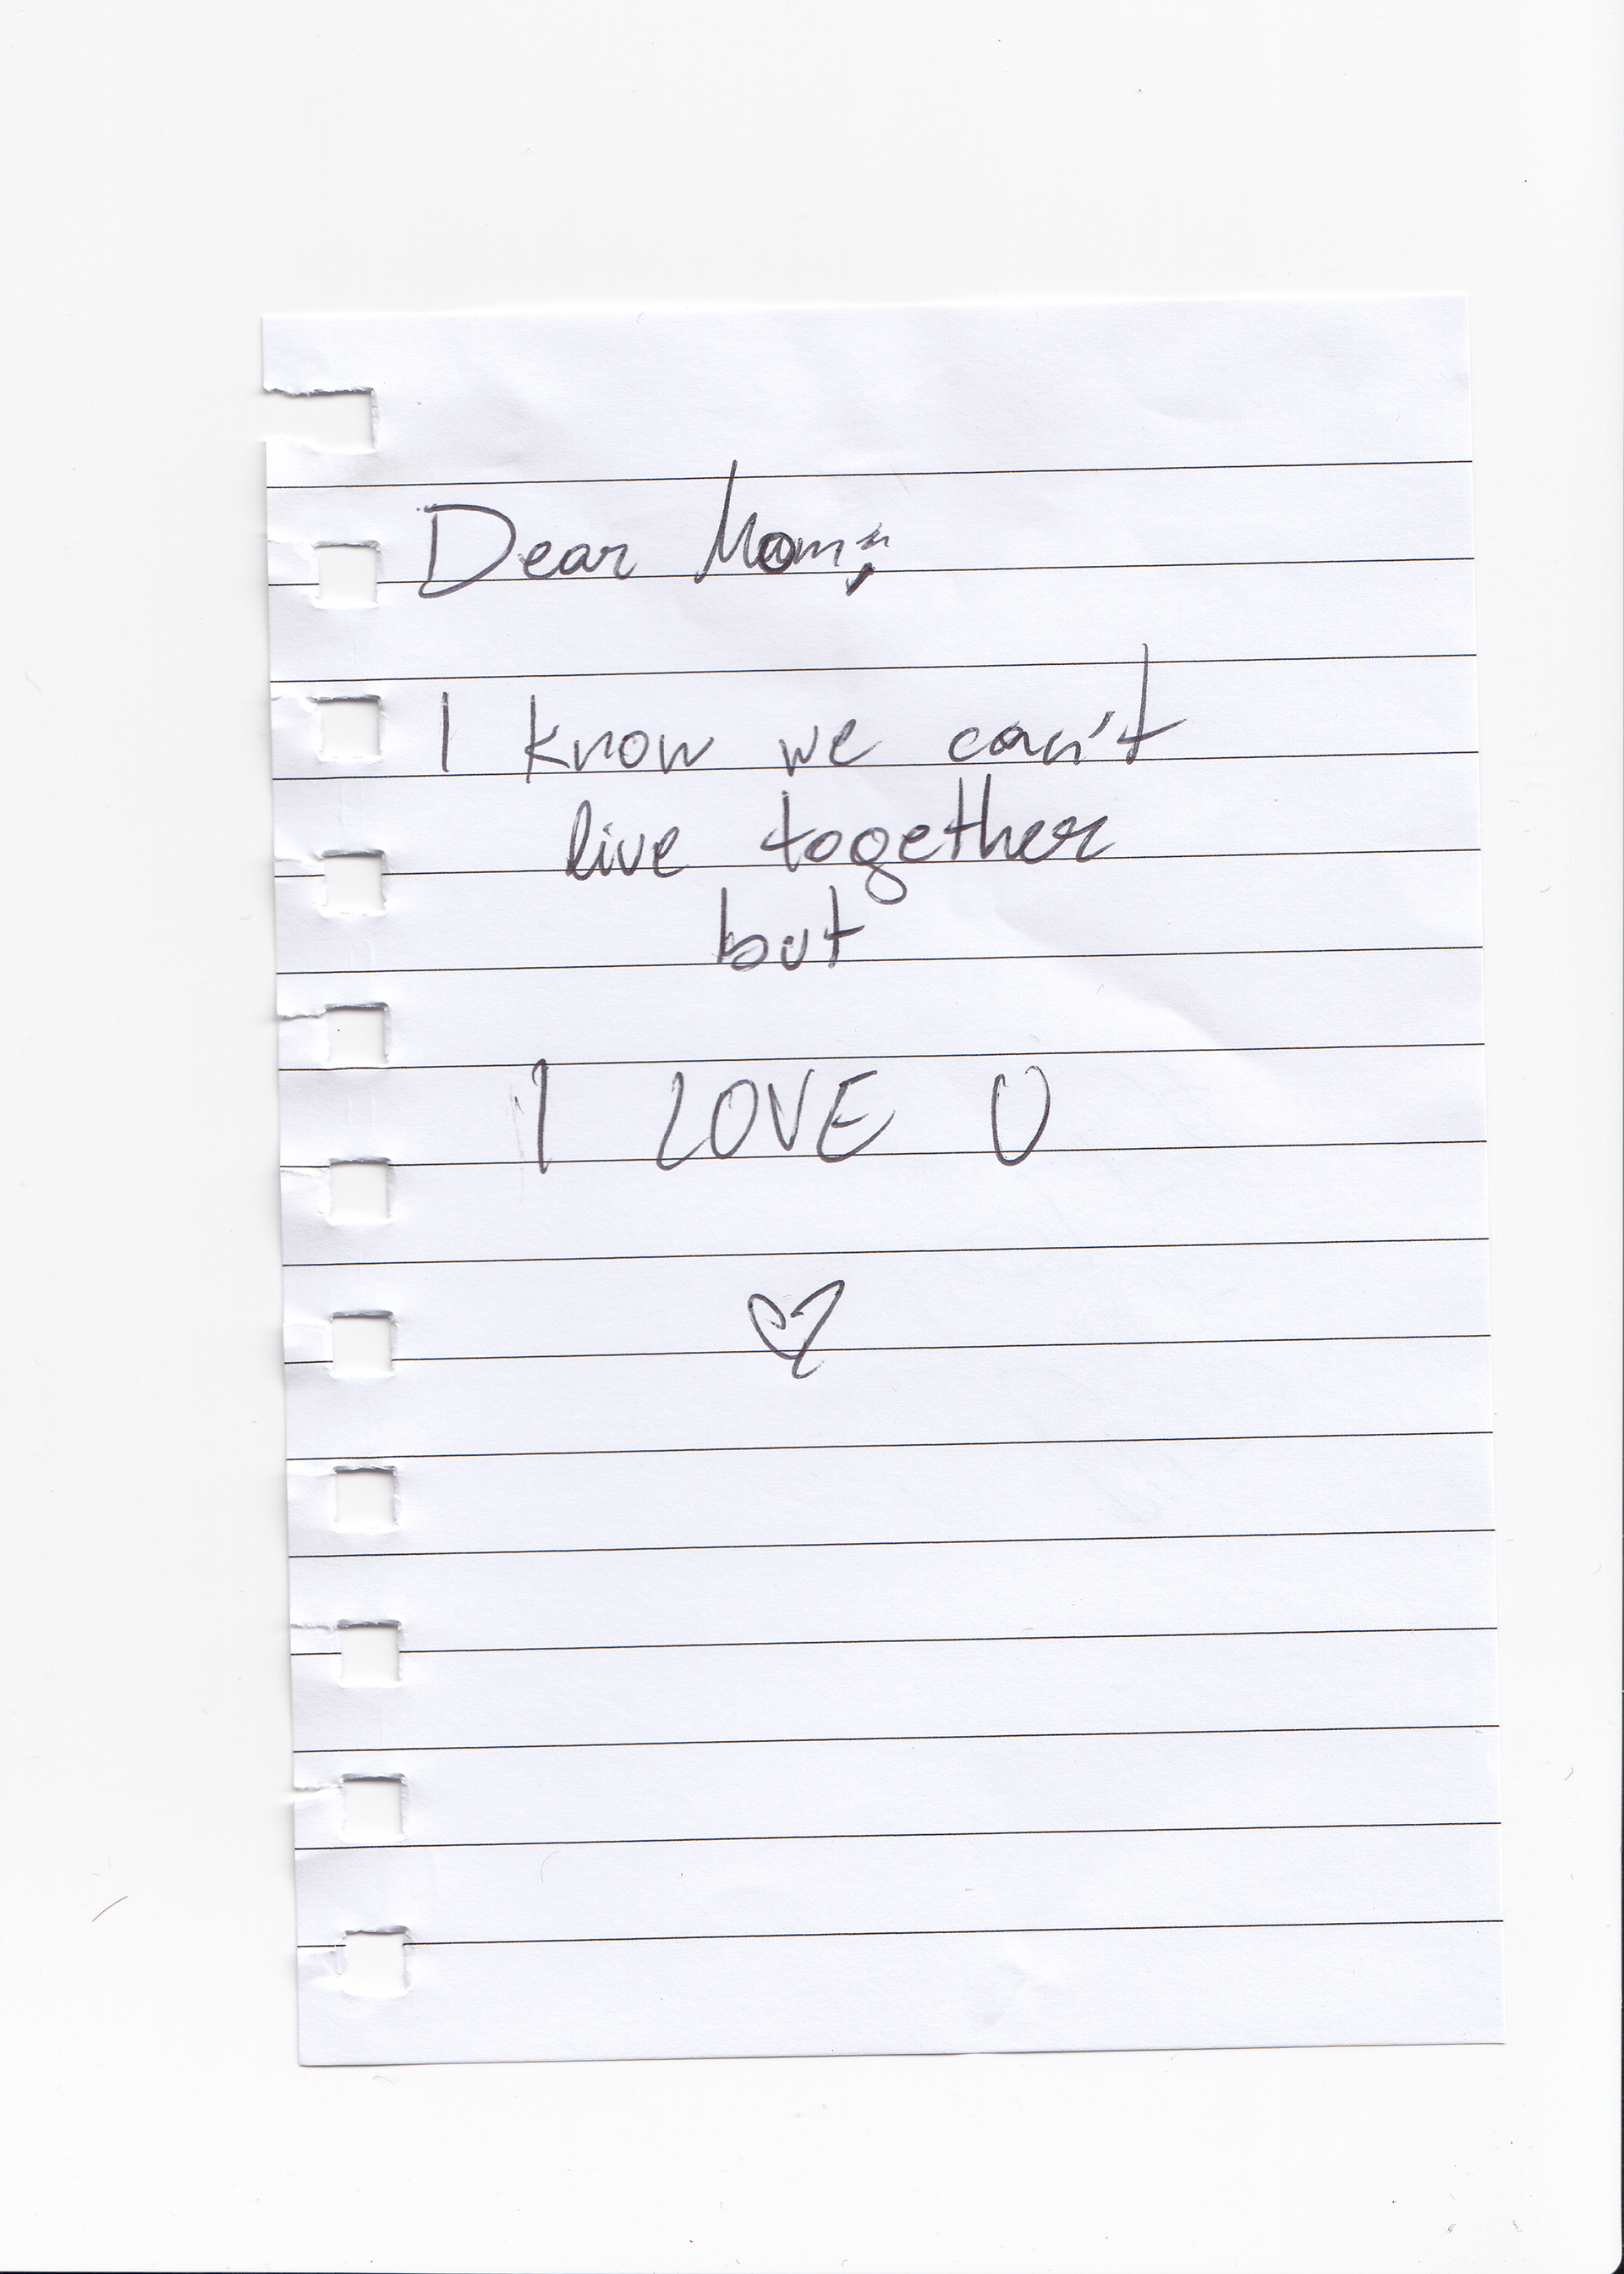 Dear Mom,
I know we can't
live together
but
I LOVE U